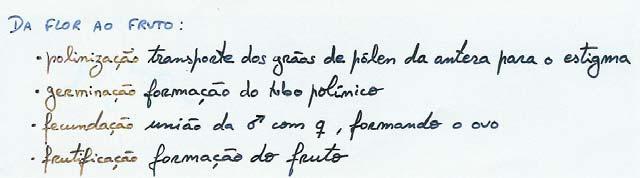 DA FLOR AO FRUTO:
· polinização transporte dos grãos de pólen da antera para o estigma
· germinação formação do tubo polínico
· fecundação união da ♂ com ♀, formando o ovo
· frutificação formação do fruto